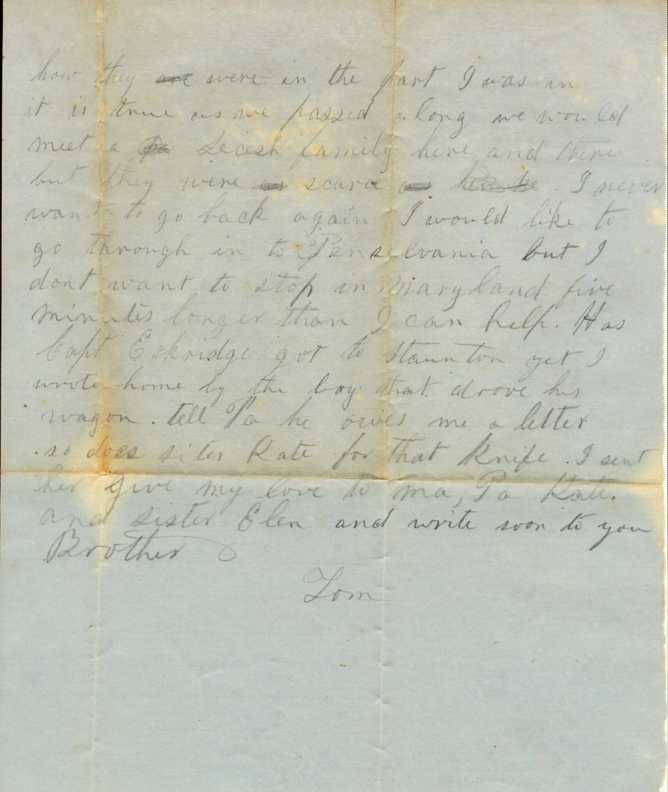 how they are were in the part I was in
it is true as we passed along we would
meet a Secesh family here and there
but they were as scarce as . I never
want to go back again I would like to
go through in to Penselvania but I
dont want to stop in Maryland five
minutes longer than I can help. Has
Capt Eskridge got to Staunton yet I
wrote home by the boy that drove his
wagon. tell Pa he owes me a letter
. so does sister Kate for that knife. I sent
her give my love to ma, Pa Kate.
and sister Elen and write soon to you
Brother
Tom